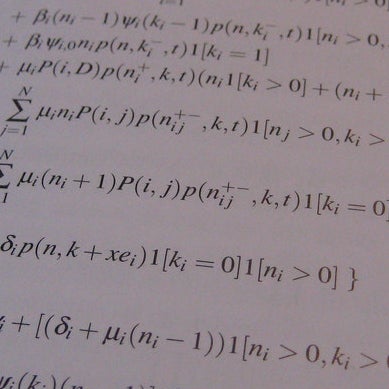 + β_i(n_i − 1)ψ_i(k_i − 1)p(n, k_i^-, t)1[n_i > 0,
+ β_iψ_{i,0}n_ip(n, k_i^-, t)1[k_i = 1]
+ μ_iP(i, D)p(n_i^+, k, t)(n_i1[k_i > 0] + (n_i +
∑_{j=1}^{N} μ_in_iP(i, j)p(n_{ij}^{+-}, k, t)1[n_j > 0, k_i >
∑^{N} μ_i(n_i + 1)P(i, j)p(n_{ij}^{+-}, k, t)1[k_i = 0]
δ_ip(n, k + xe_i)1[k_i = 0]1[n_i > 0] }
+ [(δ_i + μ_i(n_i − 1))1[n_i > 0, k_i >